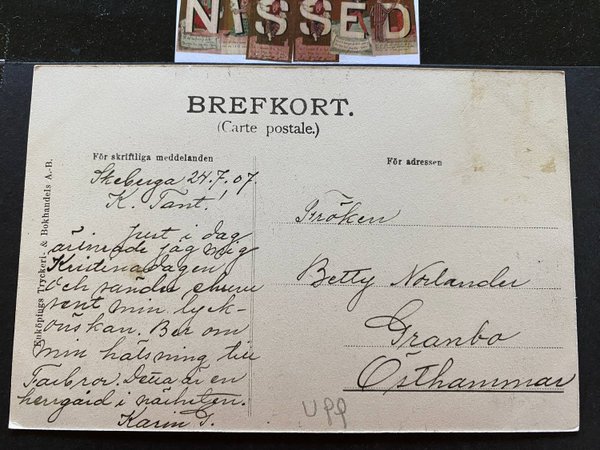 NISSED
BREFKORT.
(Carte postale.)
För skriftliga meddelanden
För adressen
Skeberga 24.7.07.
K. Tant!
Just i dag
ärinrade jag mig
Kristinadagen,
och sänder
vent min lyck-
önskan. Ber om
min hälsning till
Farbror. Detta är en
herrgård i närheten.
Karin G.
Fröken
Betty Norlander
Granbo
Östhammar
upp
Enköpings Tryckeri- & Bokhandels A.-B.